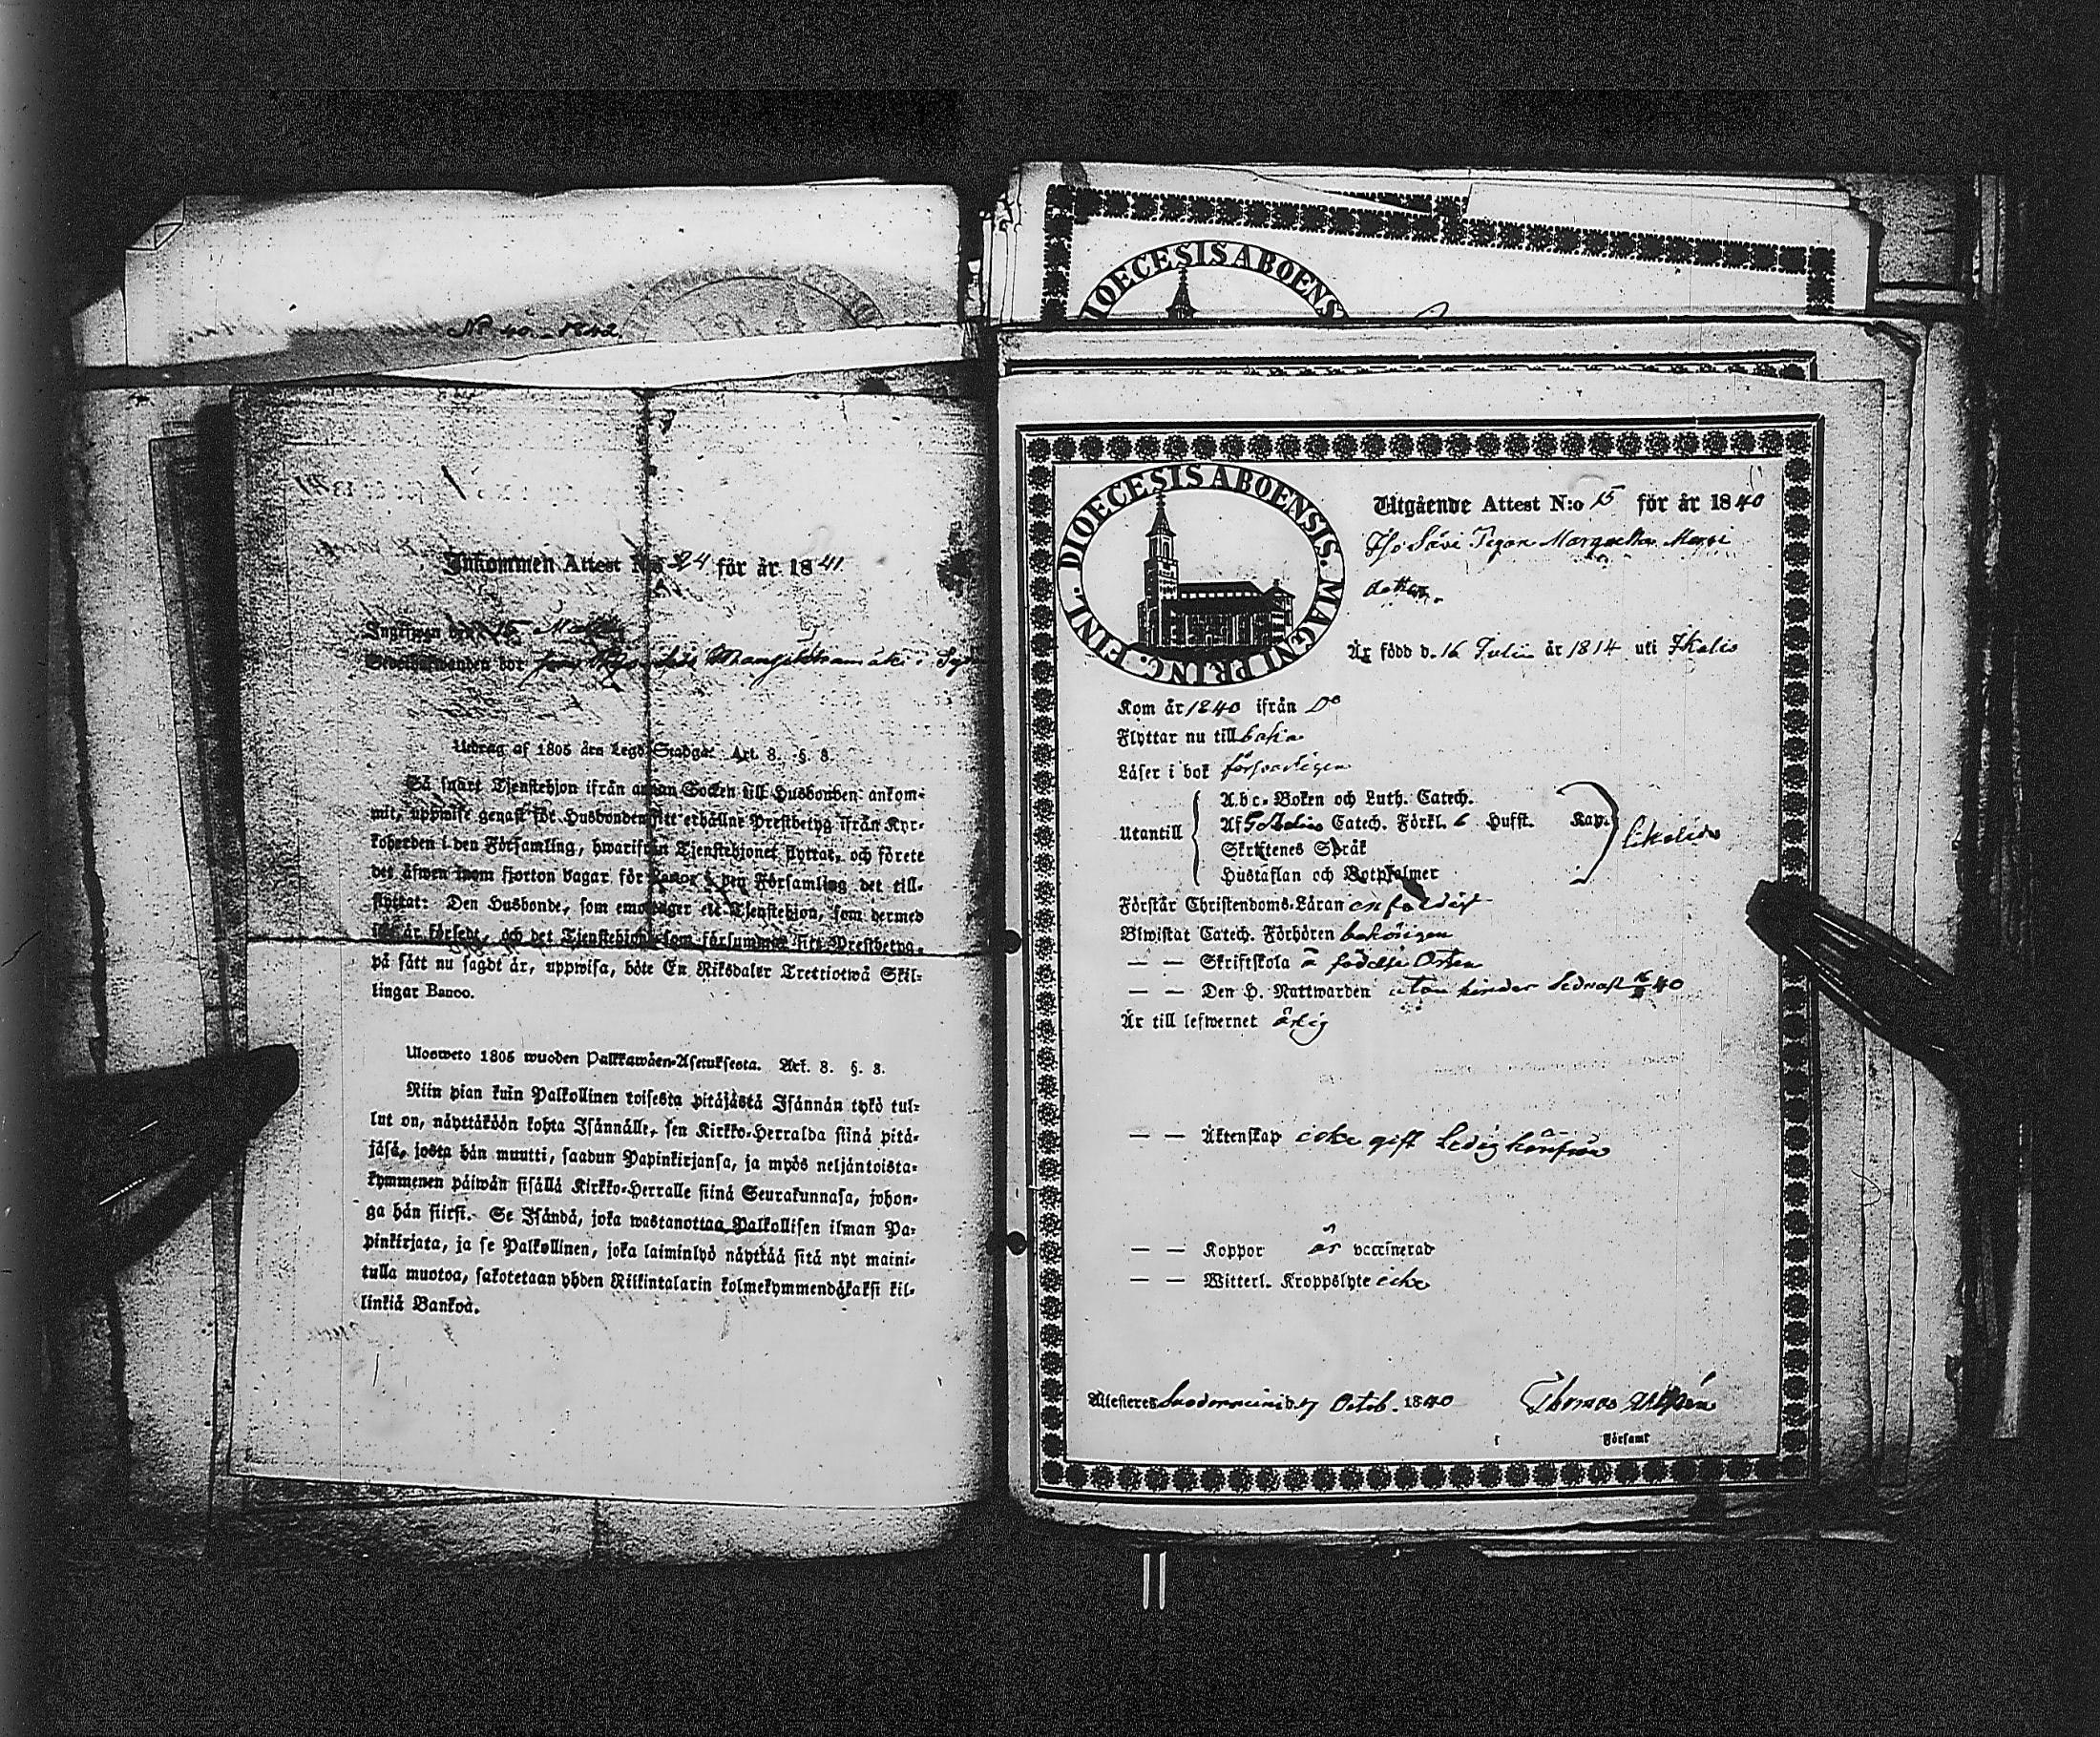 No 40. 1842
Inkommen Attest N:o 24 för år 1841
15
Sedelhafwanden bor
Utdrag af 1805 års Lego-Stadga. Art. 8. §. 8.
Så snart Tjenstehjon ifrån annan Socken till Husbonden ankom-
mit, uppwise genast för Husbonden sitt erhållne Prestbetyg ifrån Kyr-
koherden i den Församling, hwarifrån Tjenstehjonet flyttat, och förete
det äfwen inom fjorton dagar för Pastor i den Församling det till-
flyttat: Den Husbonde, som emottager ett Tjenstehjon, som dermed
är försedt, och det Tjenstehjon som försummar sitt Prestbetyg,
på sätt nu sagdt är, uppwisa, böte En Riksdaler Trettiotwå Skil-
lingar Banco.
Ulosweto 1805 wuoden Palkkawäen-Asetuksesta. Art. 8. §. 8.
Niin pian kuin Palkollinen toisesta pitäjästä Isännän tykö tul-
lut on, näyttäköön kohta Isännälle, sen Kirkko-Herralda siinä pitä-
jäsä, josta hän muutti, saadun Papinkirjansa, ja myös neljäntoista-
kymmenen päiwän sisällä Kirkko-Herralle siinä Seurakunnasa, johon-
ga hän siirsi. Se Isändä, joka wastanottaa Palkollisen ilman Pa-
pinkirjata, ja se Palkollinen, joka laiminlyö näyttää sitä nyt maini-
tulla muotoa, sakotetaan yhden Riikintalarin kolmekymmendäkaksi kil-
linkiä Bankoa.
DIOECESIS ABOENS
DIOECESIS ABOENSIS. MAGNI PRINC. FINL.
Utgående Attest N:o 15 för år 1840
Pigan Margaretha Matts
dotter.
Är född d. 16 Julii år 1814 uti Ikalis
Kom år 1840 ifrån Do
Flyttar nu till baka
Läser i bok försvarligen
Utantill
A.b.c.-Boken och Luth. Catech.
Af Catech. Förkl. 6 Hufst. Kap.
Skriftenes Språk
Hustaflan och Botpsalmer
likaledes
Förstår Christendoms-Läran enfaldigt
Biwistat Catech. Förhören behörigen
— — Skriftskola å födelse Orten
— — Den H. Nattwarden utan hinder sednast 40
Är till lefwernet ärlig
— — Äktenskap icke gift Ledig härifrån
— — Koppor är vaccinerad
— — Witterl. Kroppslyte icke
Attesteres Suodenniemi d. 17 Octob. 1840
Thomas
Församl